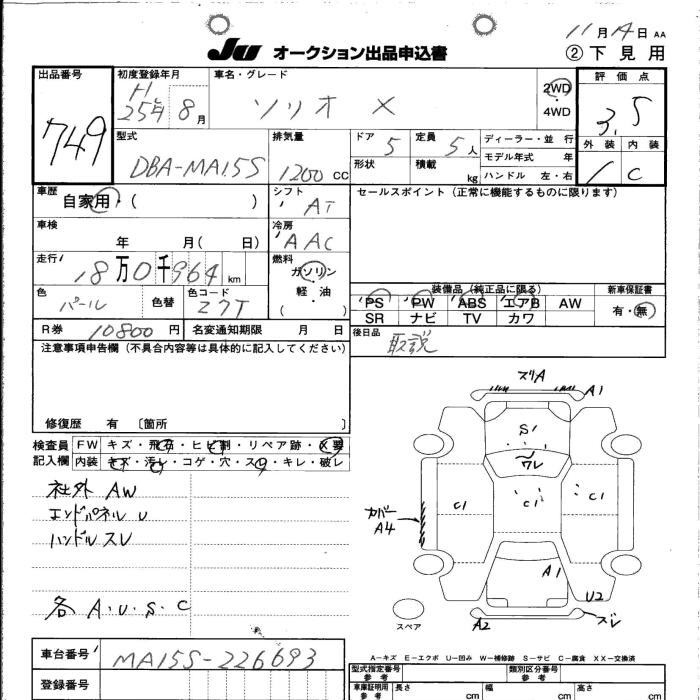 11月14日 AA
JU オークション出品申込書
②下見用
出品番号
749
初度登録年月
H
25年 8月
車名・グレード
ソリオ X
2WD
4WD
評価点
3.5
外装 内装
1 C
型式
DBA-MA15S
排気量
1200 CC
ドア
5
定員
5人
形状
積載
kg
ディーラー・並行
モデル年式 年
ハンドル 左・右
車歴
自家用・( )
シフト
AT
セールスポイント(正常に機能するものに限ります)
車検
年 月( 日)
冷房
AAC
走行
18万0千964 km
燃料
ガソリン
軽・油
( )
色
パール
色替
色コード
Z7T
装備品(純正品に限る)
PS PW ABS エアB AW
SR ナビ TV カワ
新車保証書
有・無
R券 10800円
名変通知期限 月 日
後日品
取説
注意事項申告欄(不具合内容等は具体的に記入してください)
修復歴 有 〔箇所 〕
検査員
記入欄
FW キズ・飛石・ヒビ割・リペア跡・X要
内装 キズ・汚レ・コゲ・穴・スレ・キレ・破レ
社外 AW
エンドパネル U
ハンドル スレ
各 A.U.S.C
ズリA
A1
S1
ワレ
C1
C1
C1
カバー
A4
A1
U2
A2
ズレ
スペア
A-キズ E-エクボ U-凹み W-補修跡 S-サビ C-腐食 XX-交換済
車台番号
MA15S-226693
登録番号
型式指定番号
参考
類別区分番号
参考
車庫証明用
参考
長さ
cm
幅
cm
高さ
cm